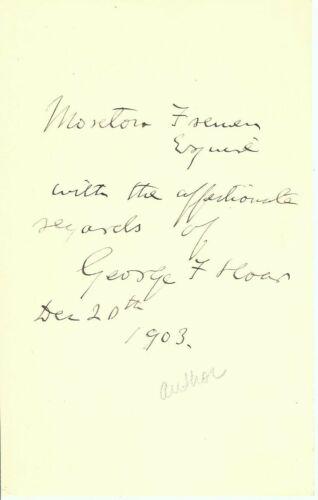 Moreton Frewen
Esquire
with the affectionate
regards of
George F Hoar
Dec 20th
1903.
author